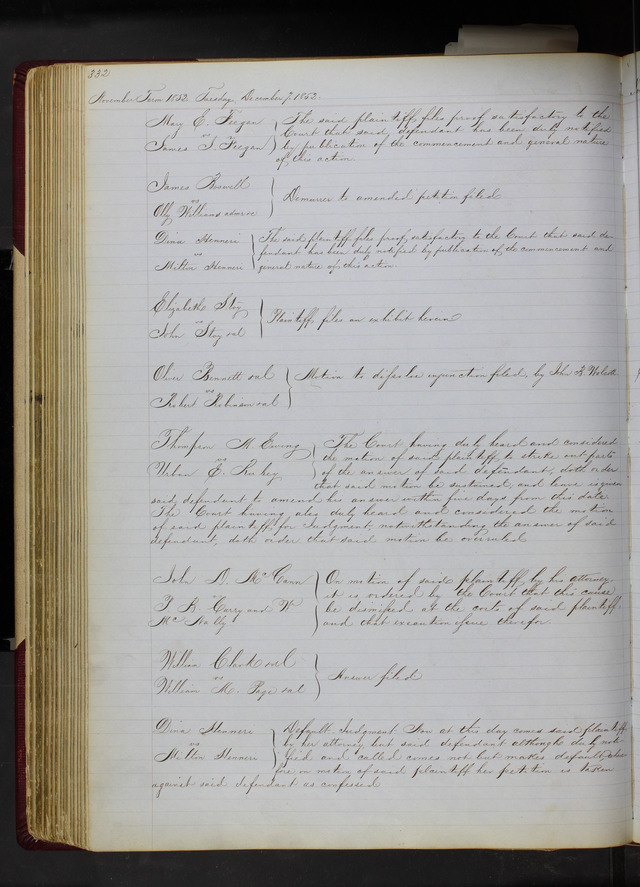 332
November Term 1852 Tuesday December 7, 1852.
Mary E. Feegan } The said plaintiff files proof satisfactory to the
vs Court that said defendant has been duly notified
James S. Feegan } by publication of the commencement and general nature
of this action.
James Boswell
vs } Demurrer to amended petition filed
Williams admr
Dina Henneri } The said plaintiff files proof satisfactory to the Court that said de
vs fendant has been duly notified by publication of the commencement and
Milton Henneri general nature of this action.
Elizabeth Stoy
vs } Plaintiff files an exhibit herein
John Stoy et al
Oliver Bennett et al } Motion to dissolve injunction filed, by John
vs
Robert Robinson et al
Thompson N Ewing } The Court having duly heard and considered
vs the motion of said plaintiff to strike out parts
Urban E. of the answer of said defendant, doth order
that said motion be sustained, and leave is given
said defendant to amend his answer within five days from this date
The Court having also duly heard and considered the motion
of said plaintiff for Judgment, notwithstanding the answer of said
defendant, doth order that said motion be overruled
John D. McCann } On motion of said plaintiff by his attorney
vs it is ordered by the Court that this cause
F R Curry and W be dismissed at the costs of said plaintiff
McNally and that execution issue therefor.
William Clark et al
vs } Answer filed
William M. Page et al
Dina Henneri } Default Judgment Now at this day comes said plaintiff
vs by her attorney but said defendant although duly noti
Milton Henneri fied and called comes not but makes default, where
fore on motion of said plaintiff her petition is taken
against said defendant as confessed